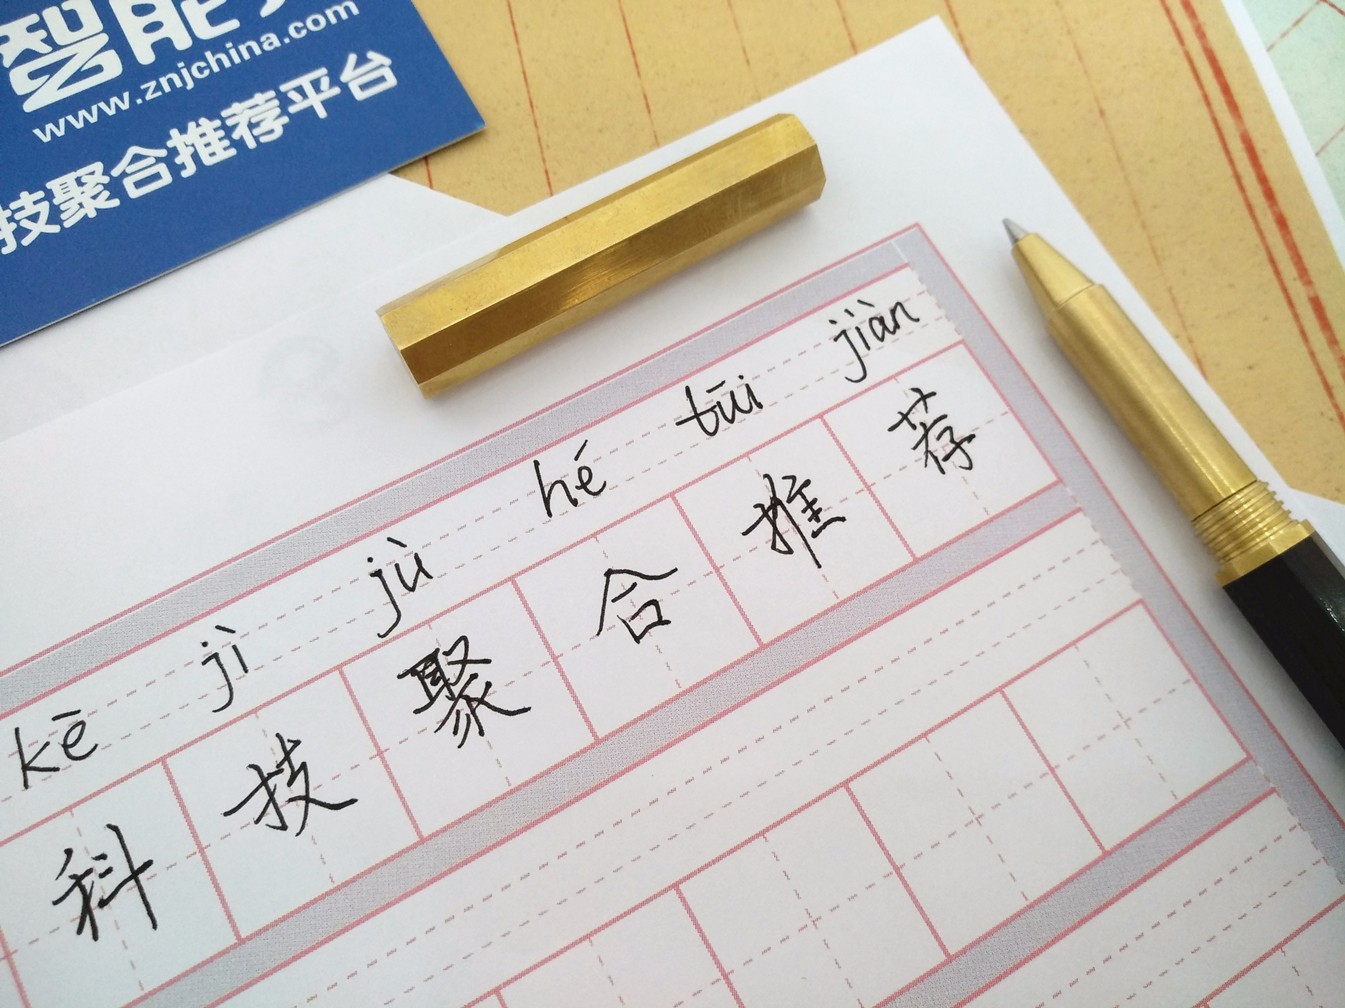 智能
www.znjchina.com
技聚合推荐平台
kē jì jù hé tūi jiàn
科技聚合推荐